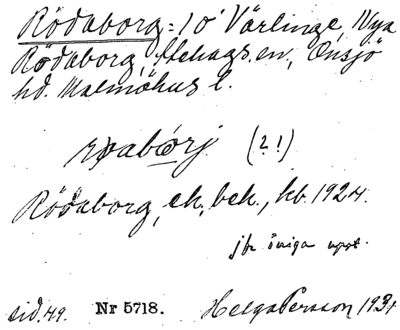 Rödaborg = 1 o' Värlinge, Nya
Rödaborg, ffehags.en., Onsjö
hd. Malmöhus l.
(?!)
Rödaborg, ek. bek., kb. 1924.
jfr övriga uppt.
sid. 49. Nr 5718. Helga Persson 1931